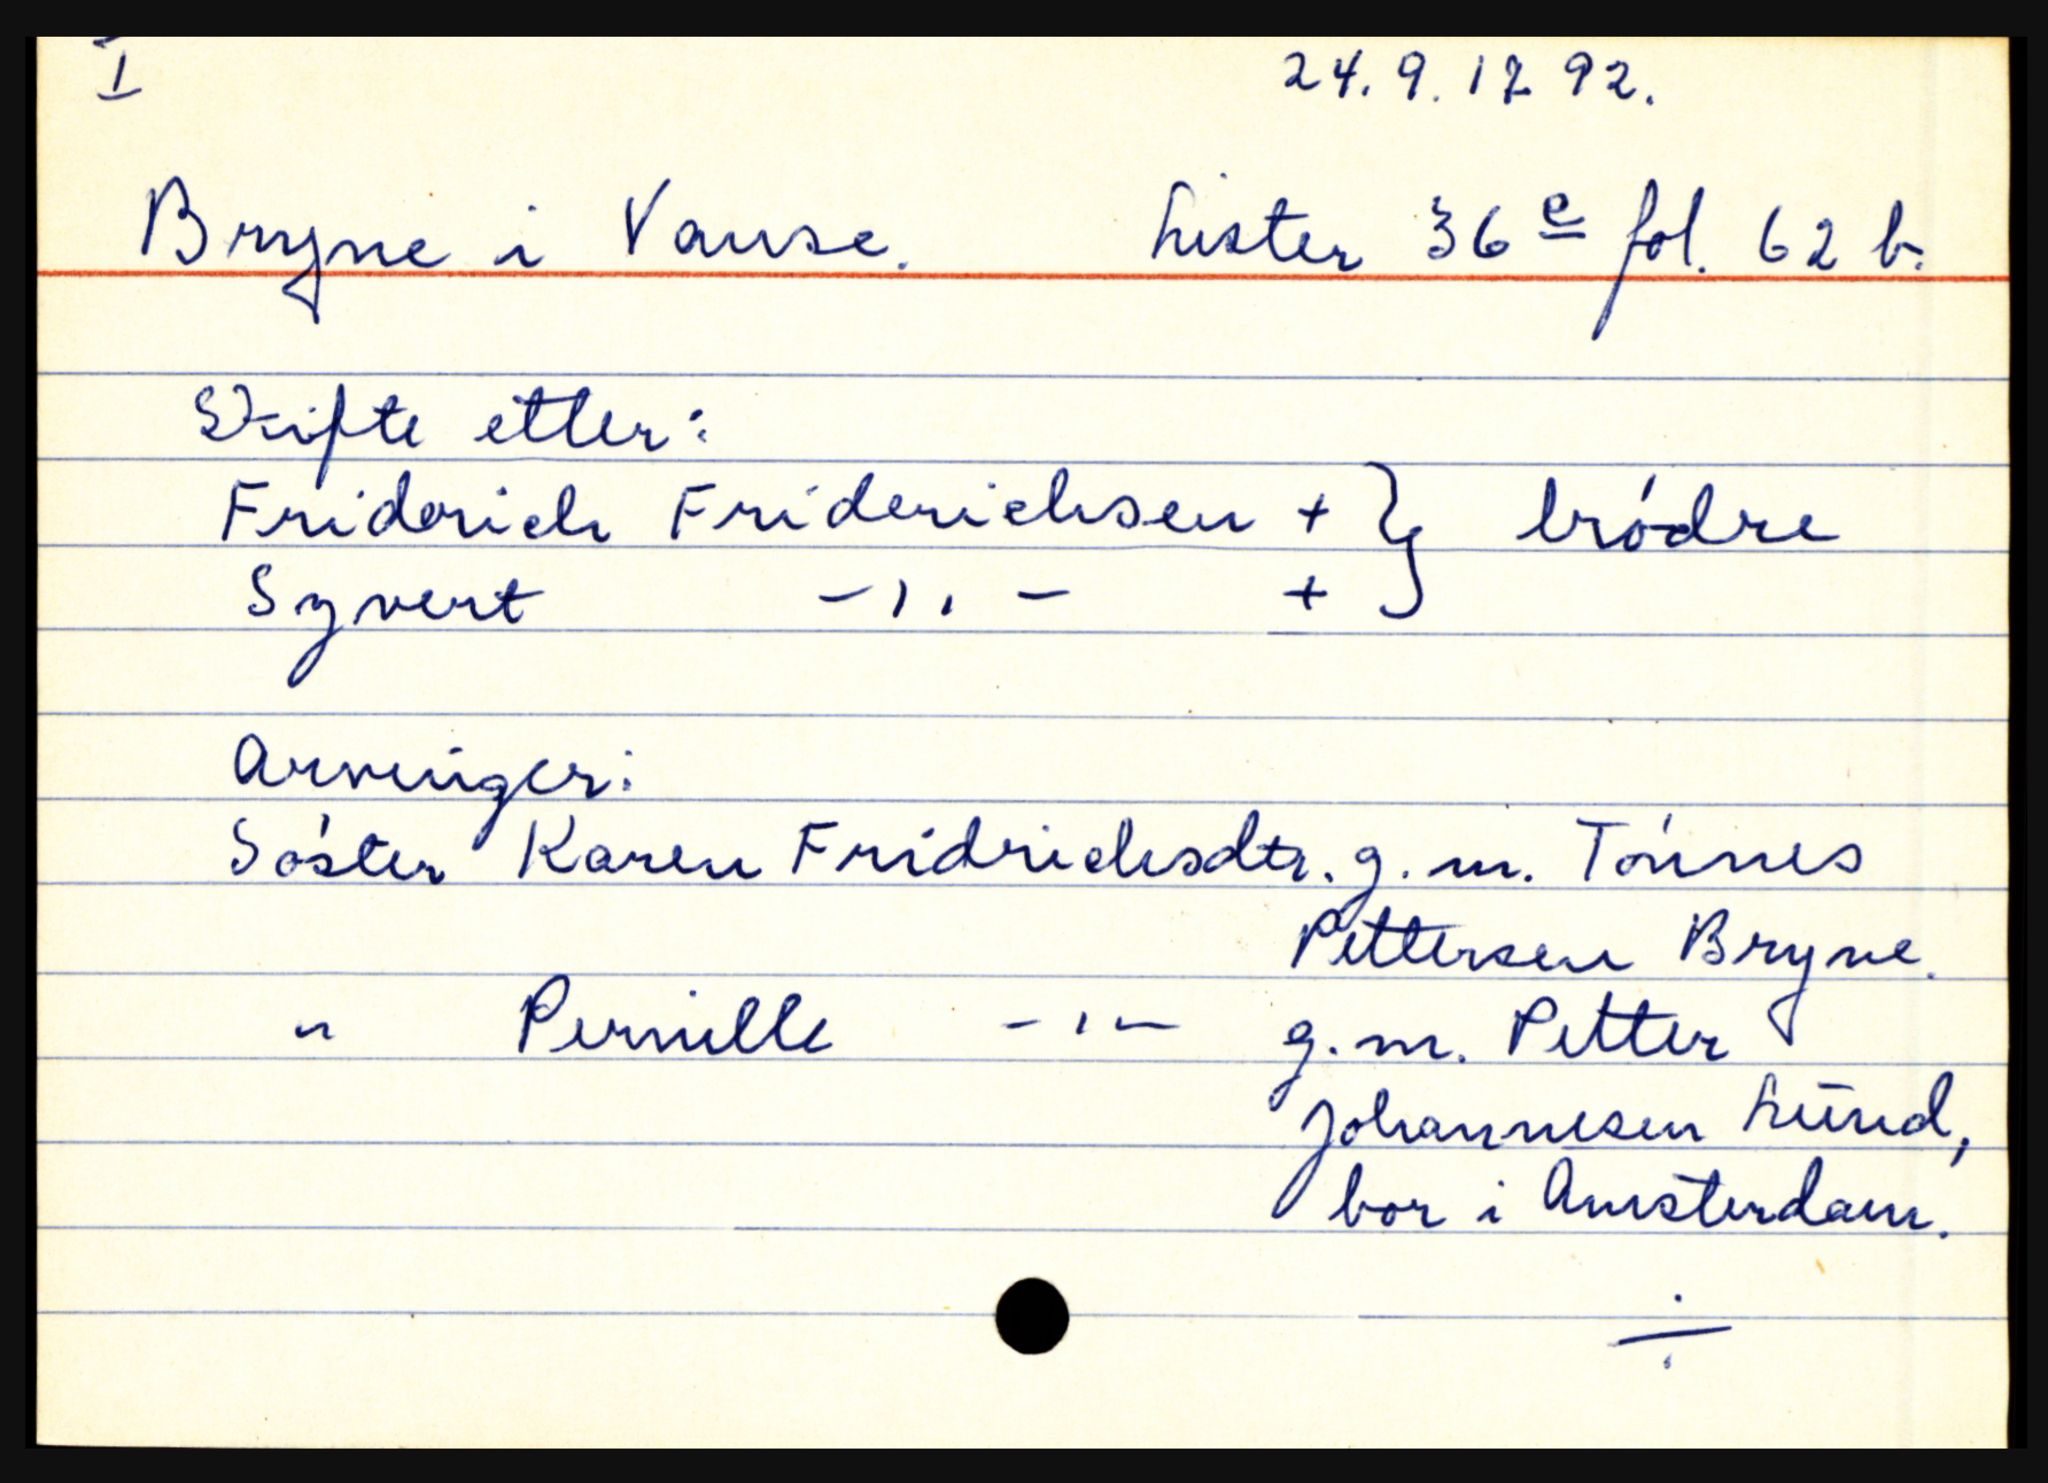 I 24.9.1792.
Bryne i Vanse. Lister 36 e fol. 62 b.
Skifte etter:
Friderich Friderichsen + } brødre
Syvert -,,- + }
Arvinger:
Søster Karen Fridrichsdtr. g.m. Tønnes
Pettersen Bryne.
" Pernille -,- g.m. Petter
Johannesen Lund,
bor i Amsterdam.
÷